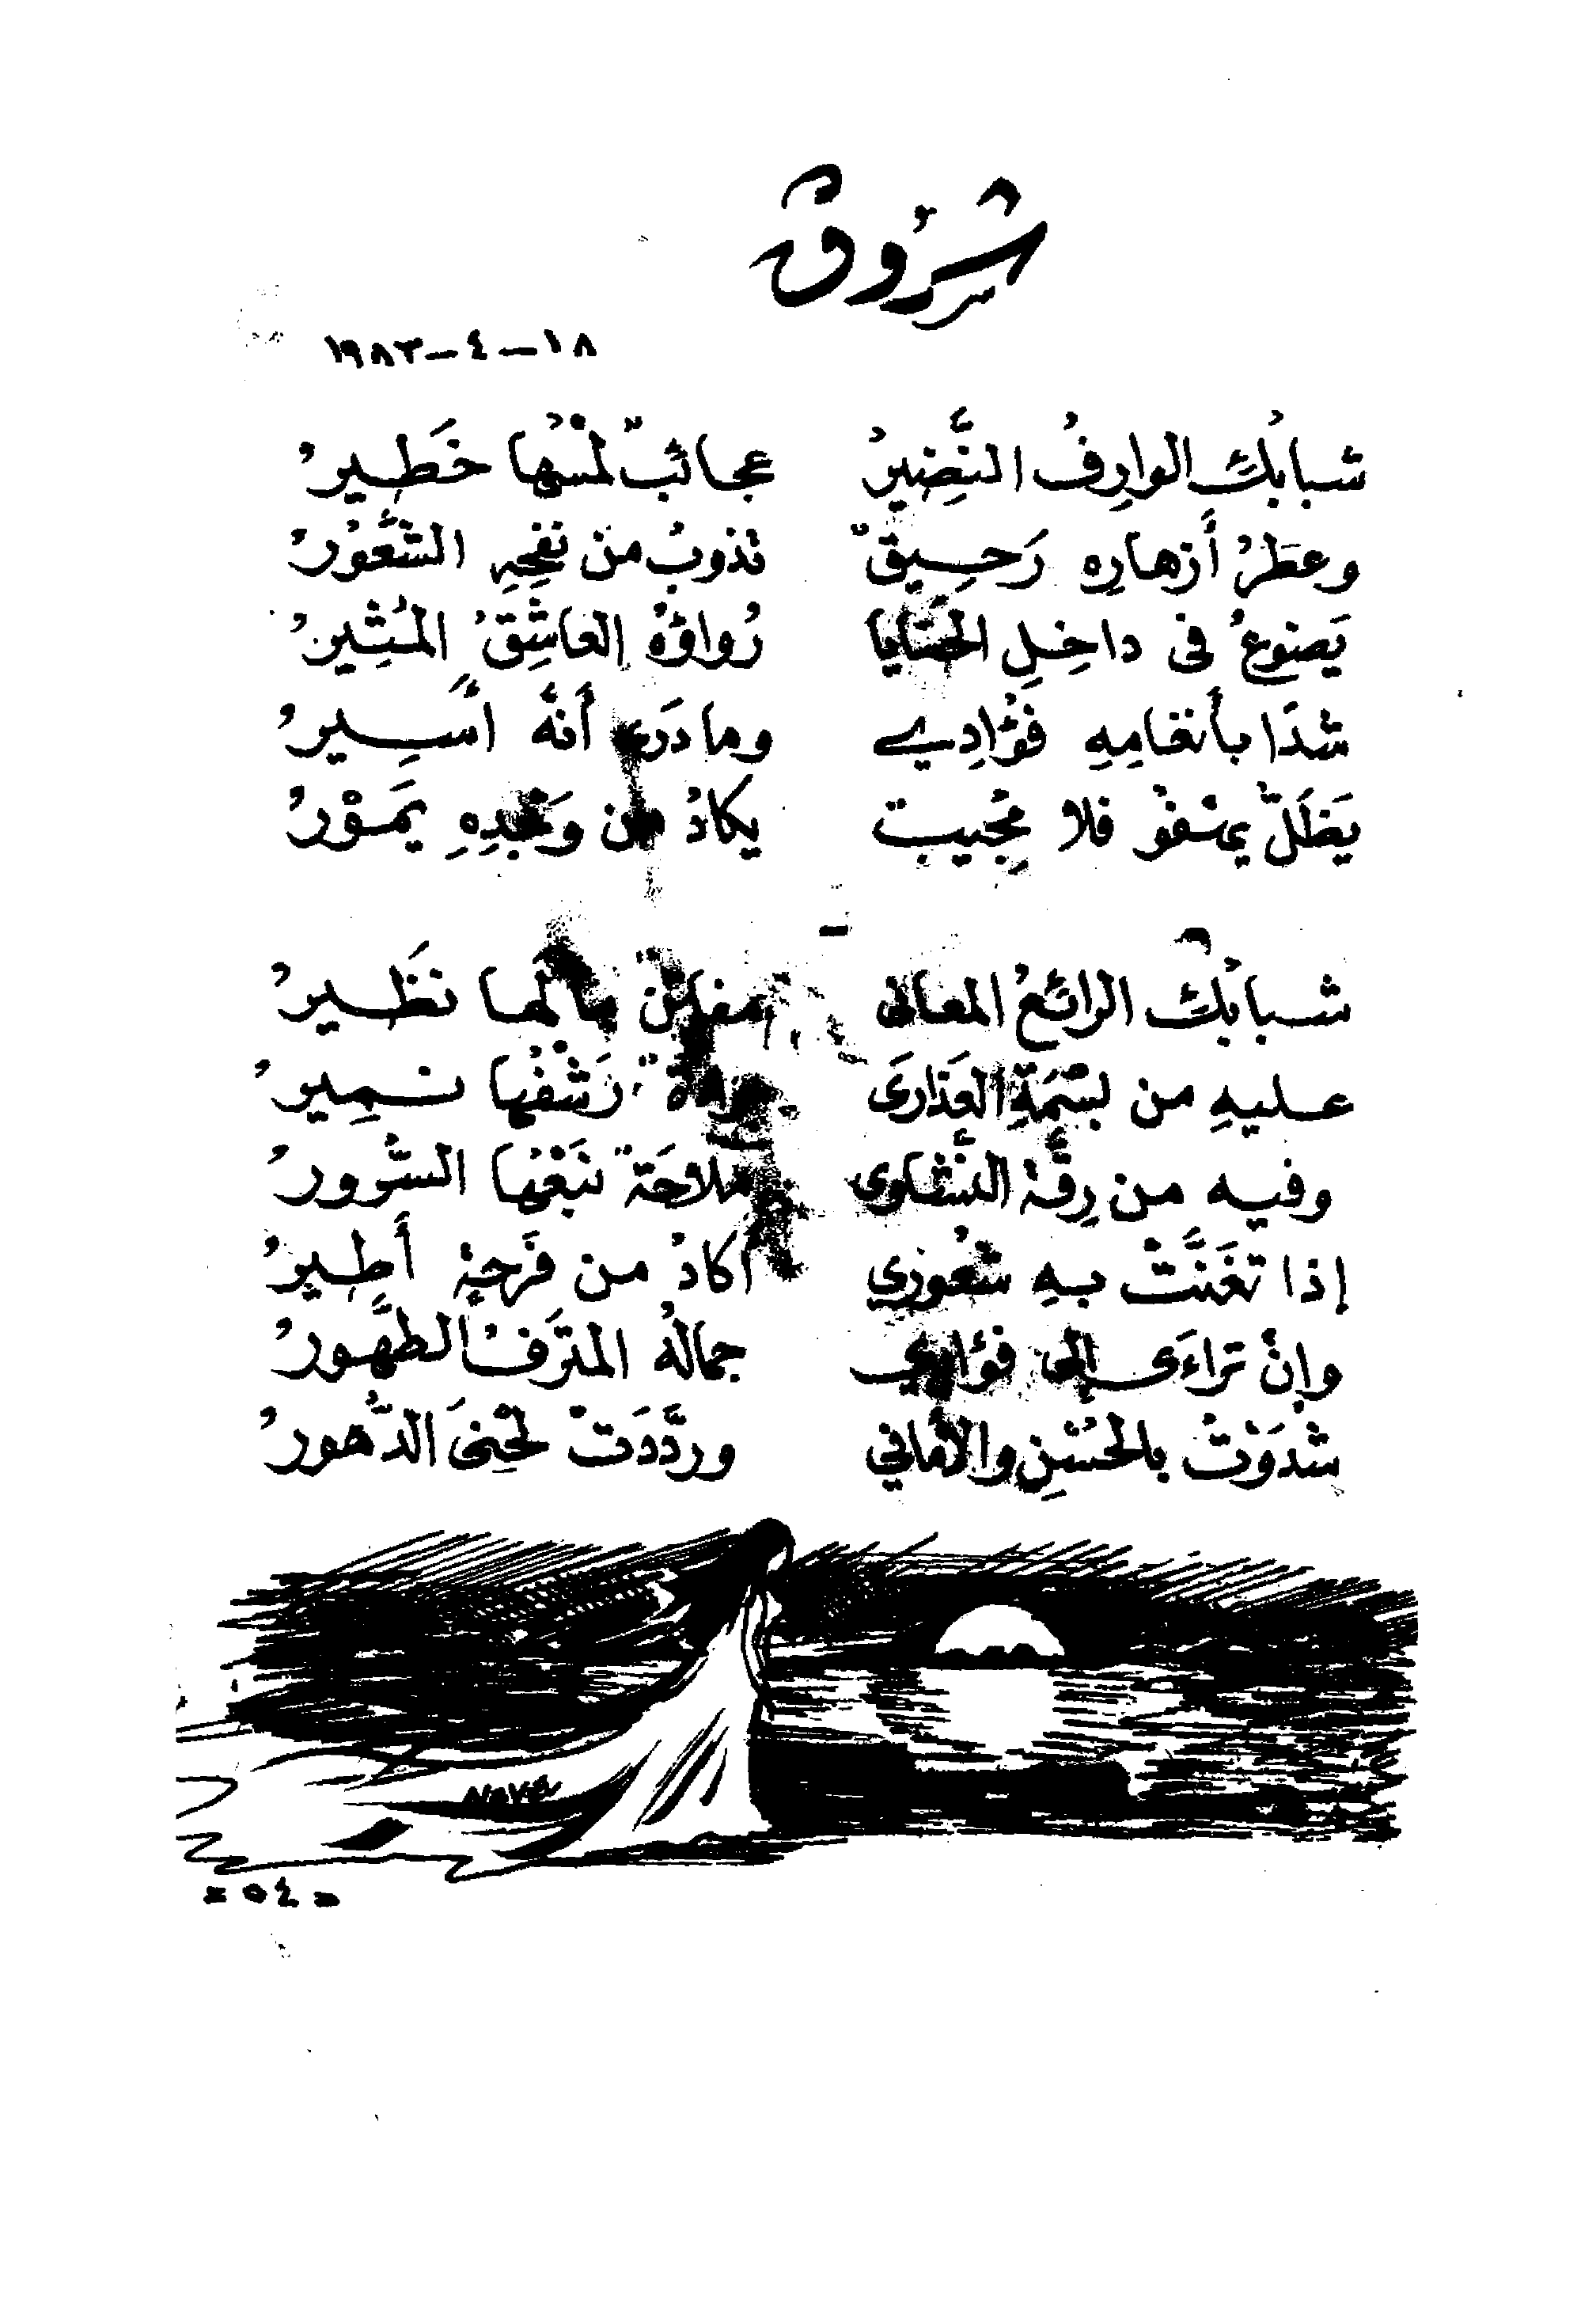 شُرُوق
١٨-٤-١٩٨٣
شبابُكِ الوارِفُ النَّضِيرُ عجائبٌ لمسُها خَطِيرُ
وعِطرُ أزهارِهِ رَحِيقٌ تذوبُ من نفحِهِ الشُّعُورُ
يَضوعُ في داخِلِ الحَنايا رُواؤهُ العاشِقُ المُثِيرُ
شدَا بأنغامِهِ فُؤادِي وما دَرَى أنَّهُ أَسِيرُ
يَظَلُّ يهفُو فلا مُجِيبٌ يكادُ من وَجْدِهِ يَمُوْرُ
شبابُكِ الرائعُ المعاني مفاتنٌ مالَها نَظِيرُ
عليهِ من بَسْمَةِ العَذارَى رَشْفُها نمِيرُ
وفيه من رِقَّةِ النَّشاوى ملاحَةٌ نَبْعُها السُّرورُ
إذا تَغَنَّتْ بهِ شُعُورِي أكادُ من فَرْحَةٍ أَطِيرُ
وإنْ تراءَى إلى فؤادي جمالُهُ المترَفُ الطَّهُورُ
شدَوْتُ بالحُسْنِ والأماني وردَّدَتْ لَحْنِيَ الدُّهورُ
Nava
- ٥٤ -